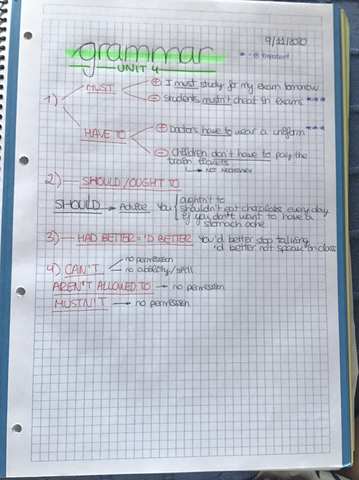 grammar
UNIT 4
9/11/2020
* → Important
1)
MUST
+ I must study for my exam tomorrow
- Students mustn't cheat in exams ***
HAVE TO
+ Doctors have to wear a uniform ***
- Children don't have to pay the
train tickets
↳ NOT NECESSARY
2) SHOULD / OUGHT TO
SHOULD → Advice You oughtn't to
shouldn't eat chocolate every day
if you don't want to have a
stomach ache
3) HAD BETTER = 'D BETTER You'd better stop talking
'd better not speak in class
4) CAN'T
no permission
no ability / skill
AREN'T ALLOWED TO → no permission
MUSTN'T → no permission